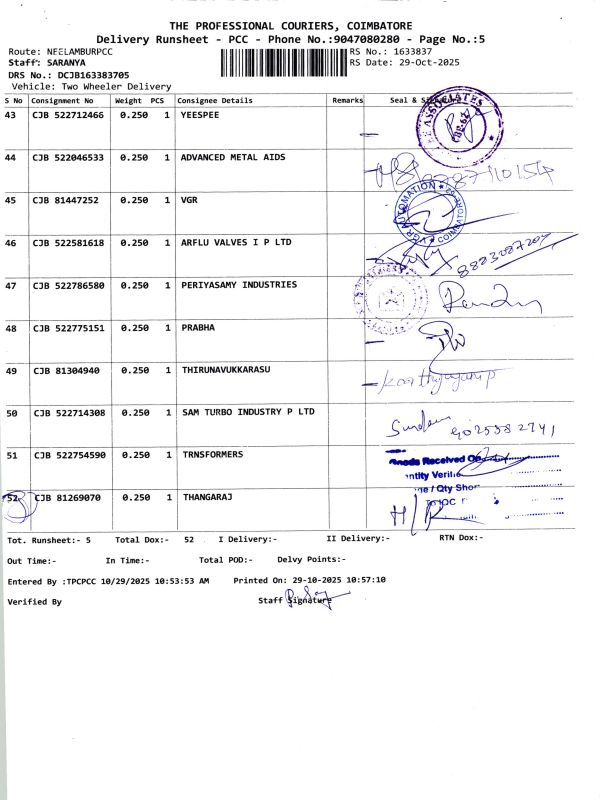 THE PROFESSIONAL COURIERS, COIMBATORE
Delivery Runsheet - PCC - Phone No.:9047080280 - Page No.:5
Route: NEELAMBURPCC RS No.: 1633837
Staff: SARANYA RS Date: 29-Oct-2025
DRS No.: DCJB163383705
Vehicle: Two Wheeler Delivery
S No Consignment No Weight PCS Consignee Details Remarks Seal &
43 CJB 522712466 0.250 1 YEESPEE
ASSOCIATES
44 CJB 522046533 0.250 1 ADVANCED METAL AIDS
45 CJB 81447252 0.250 1 VGR
VGR AUTOMATION COIMBATORE
46 CJB 522581618 0.250 1 ARFLU VALVES I P LTD
47 CJB 522786580 0.250 1 PERIYASAMY INDUSTRIES
48 CJB 522775151 0.250 1 PRABHA
49 CJB 81304940 0.250 1 THIRUNAVUKKARASU
50 CJB 522714308 0.250 1 SAM TURBO INDUSTRY P LTD
9025582741
51 CJB 522754590 0.250 1 TRNSFORMERS
Goods Received On
ntity Verifi
ge / Qty Shor
52 CJB 81269070 0.250 1 THANGARAJ
Tot. Runsheet:- 5 Total Dox:- 52 I Delivery:- II Delivery:- RTN Dox:-
Out Time:- In Time:- Total POD:- Delvy Points:-
Entered By :TPCPCC 10/29/2025 10:53:53 AM Printed On: 29-10-2025 10:57:10
Verified By Staff Signature